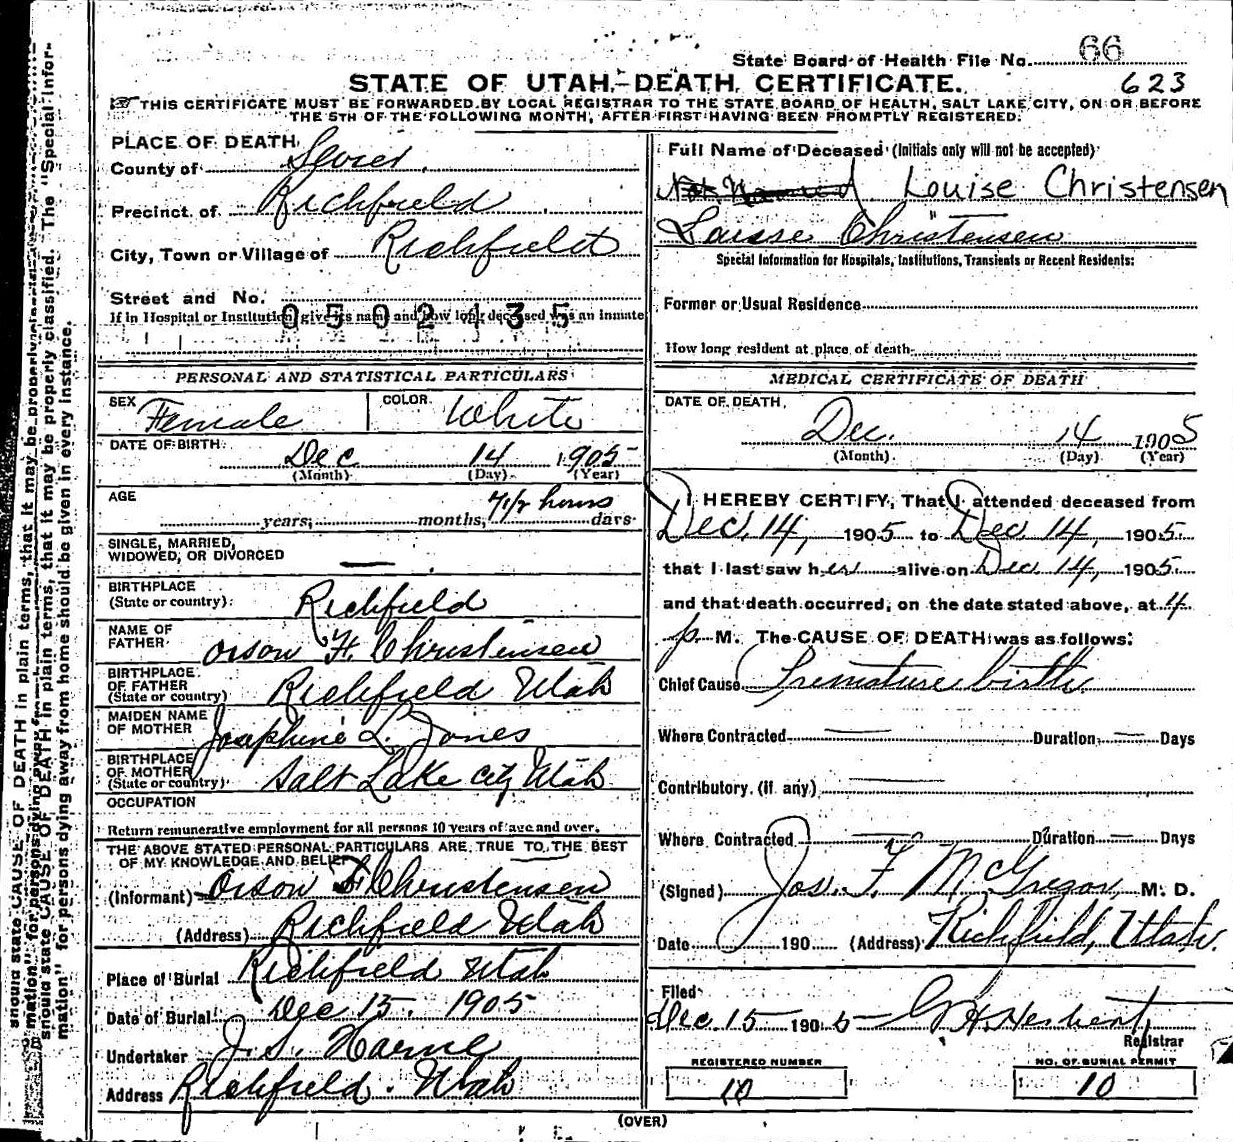 State Board of Health File No. 66
STATE OF UTAH.—DEATH CERTIFICATE.
623
THIS CERTIFICATE MUST BE FORWARDED BY LOCAL REGISTRAR TO THE STATE BOARD OF HEALTH, SALT LAKE CITY, ON OR BEFORE
THE 5TH OF THE FOLLOWING MONTH, AFTER FIRST HAVING BEEN PROMPTLY REGISTERED.
PLACE OF DEATH
County of Sevier
Precinct of Richfield
City, Town or Village of Richfield
Street and No.
0502435
If in Hospital or Institution give its name and how long deceased was an inmate
PERSONAL AND STATISTICAL PARTICULARS
SEX Female COLOR White
DATE OF BIRTH Dec 14 1905
(Month) (Day) (Year)
AGE 7 1/2 hours
years, months, days
SINGLE, MARRIED,
WIDOWED, OR DIVORCED —
BIRTHPLACE
(State or country) Richfield
NAME OF
FATHER Orson H. Christensen
BIRTHPLACE
OF FATHER
(State or country) Richfield Utah
MAIDEN NAME
OF MOTHER Josephine L. Jones
BIRTHPLACE
OF MOTHER
(State or country) Salt Lake City Utah
OCCUPATION
Return remunerative employment for all persons 10 years of age and over.
THE ABOVE STATED PERSONAL PARTICULARS ARE TRUE TO THE BEST
OF MY KNOWLEDGE AND BELIEF
(Informant) Orson H Christensen
(Address) Richfield Utah
Place of Burial Richfield Utah
Date of Burial Dec 15. 1905
Undertaker J. S. Horne
Address Richfield. Utah
Full Name of Deceased (Initials only will not be accepted)
Not Named Louise Christensen
Louise Christensen
Special Information for Hospitals, Institutions, Transients or Recent Residents:
Former or Usual Residence
How long resident at place of death
MEDICAL CERTIFICATE OF DEATH
DATE OF DEATH
Dec. 14 1905
(Month) (Day) (Year)
I HEREBY CERTIFY, That I attended deceased from
Dec. 14, 1905 to Dec. 14, 1905
that I last saw her alive on Dec 14, 1905
and that death occurred, on the date stated above, at 4
p. M. The CAUSE OF DEATH was as follows:
Chief Cause Premature birth
Where Contracted — Duration — Days
Contributory (if any) —
Where Contracted — Duration — Days
(Signed) Jos. F. McGregor, M. D.
Date 190 (Address) Richfield, Utah.
Filed
Dec 15 1905 G. H. Herbert,
Registrar
REGISTERED NUMBER
10
NO. OF BURIAL PERMIT
10
(OVER)
should state CAUSE OF DEATH in plain terms, that it may be properly classified. The "Special Infor-
mation" for persons dying away from home should be given in every instance.